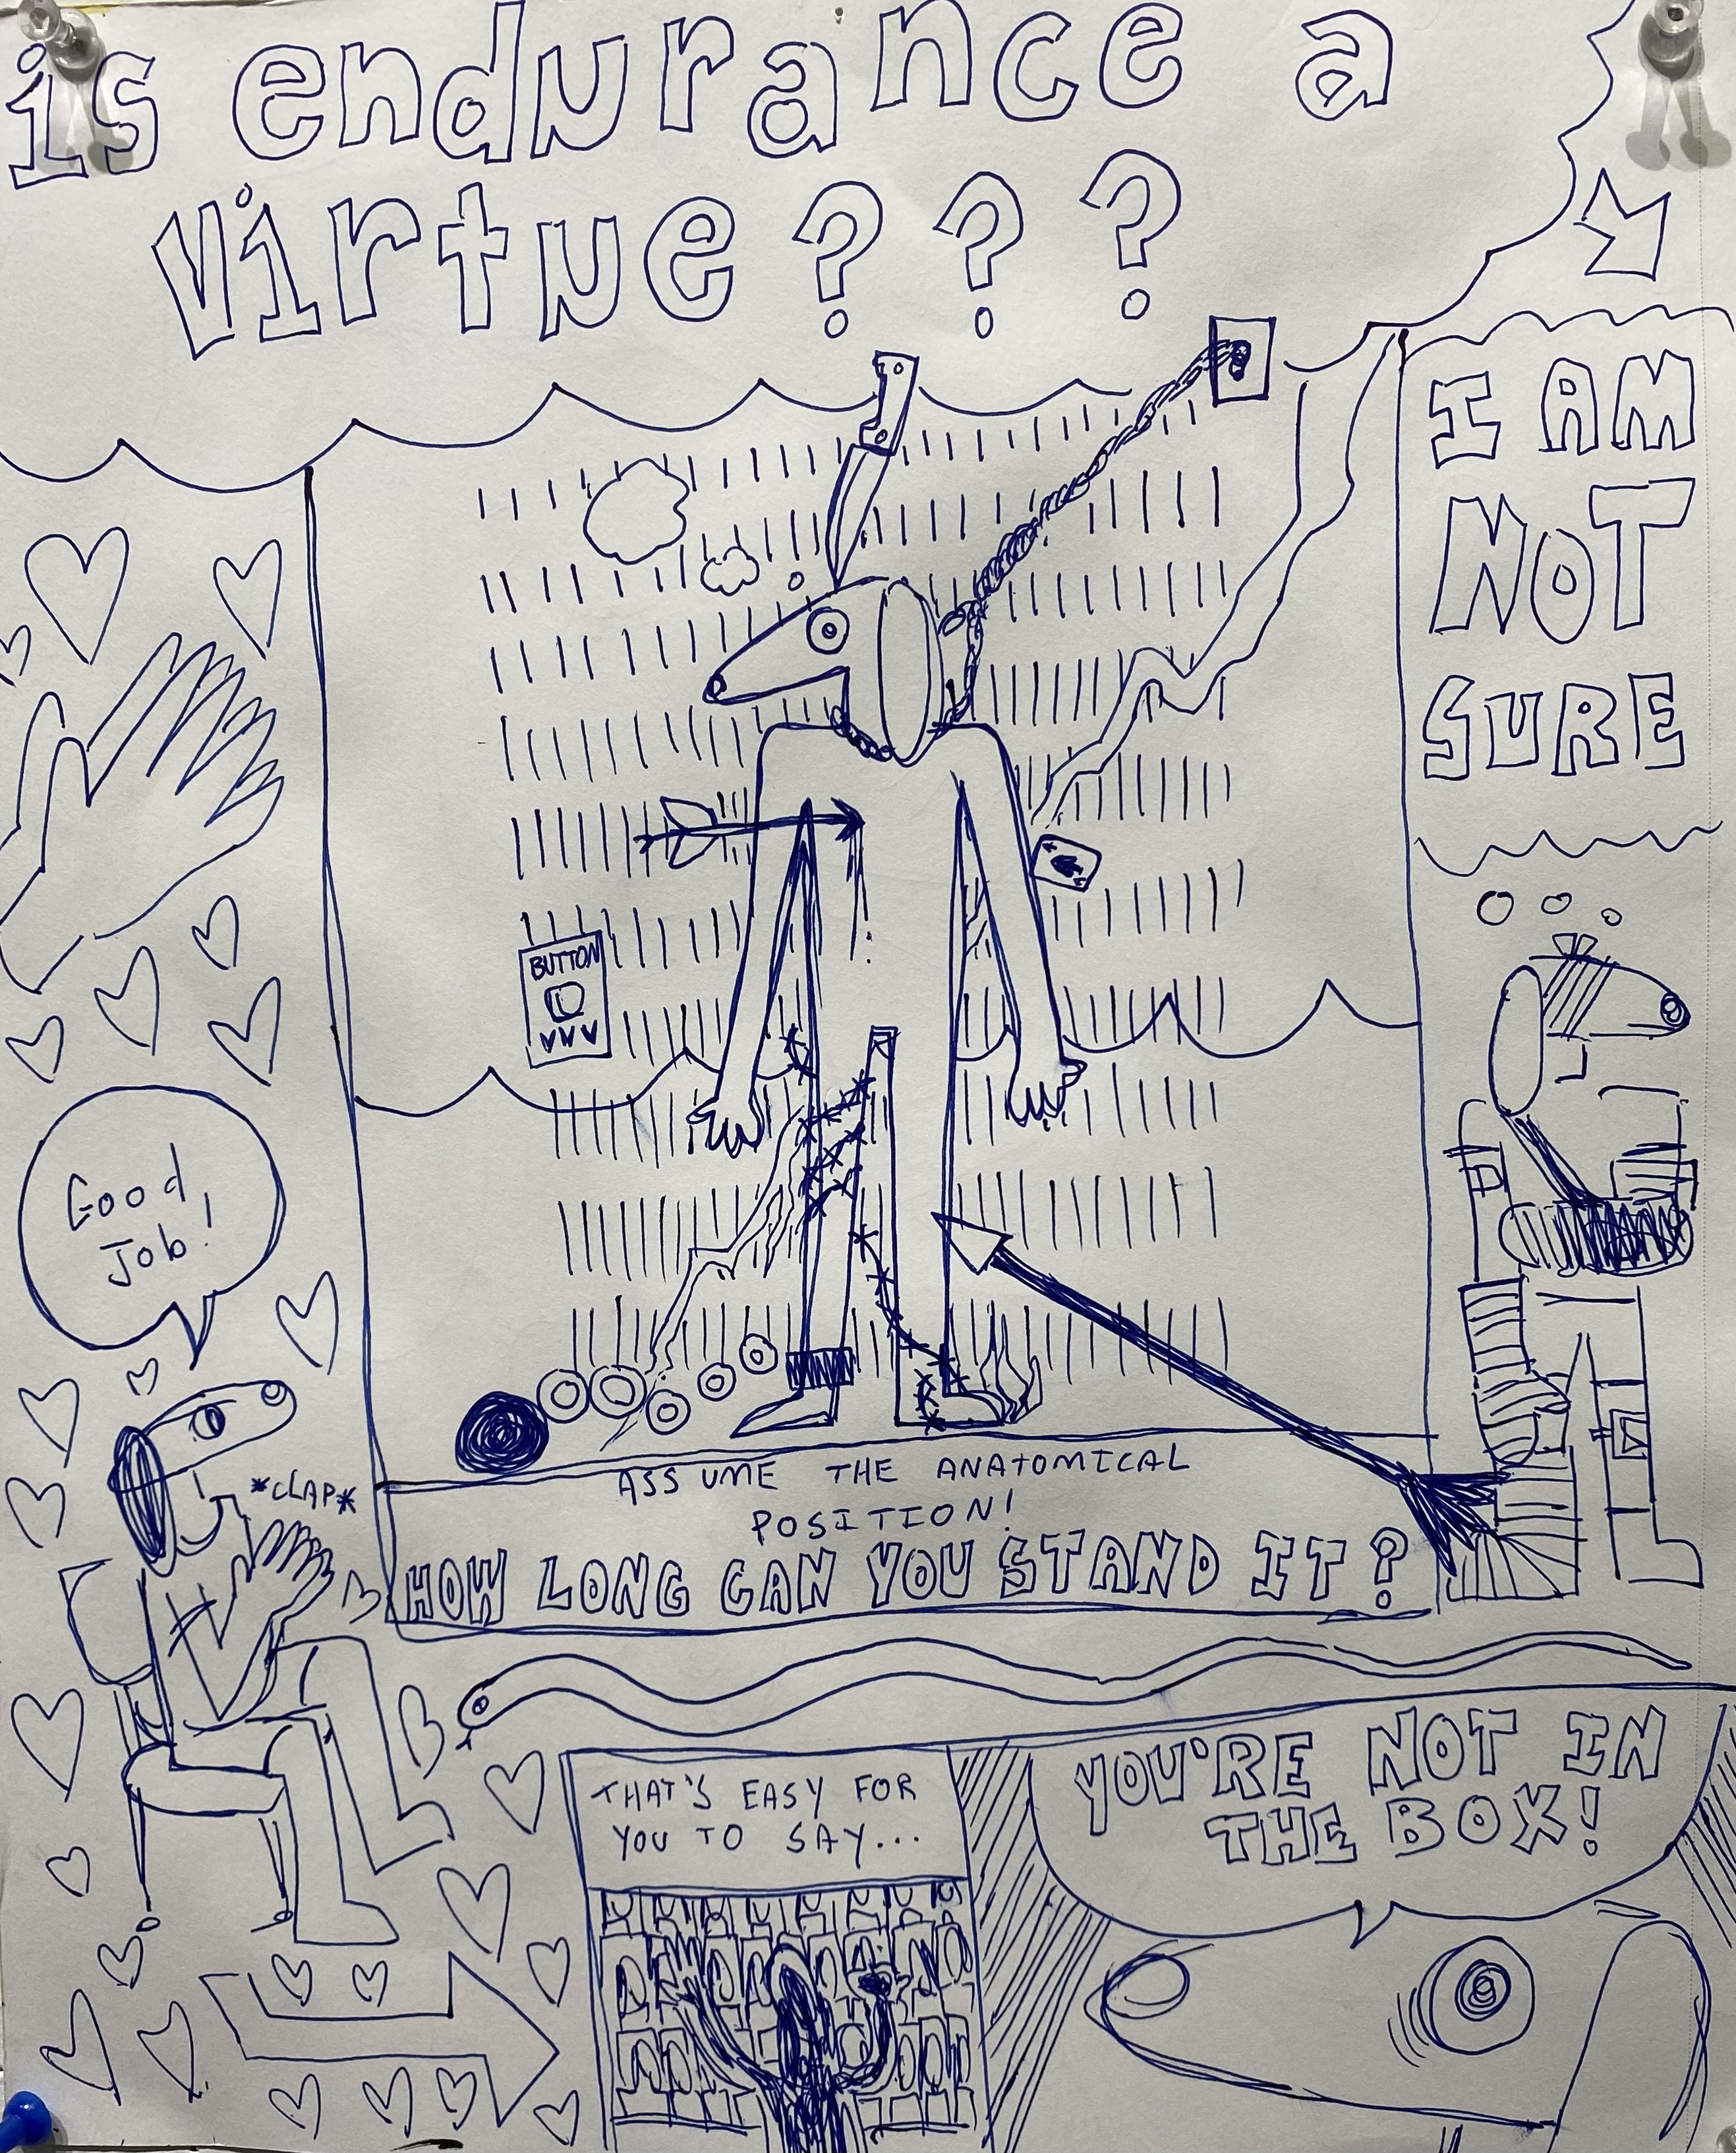 is endurance a
virtue???
I AM
NOT
SURE
BUTTON
Good
Job!
*CLAP*
ASSUME THE ANATOMICAL
POSITION!
HOW LONG CAN YOU STAND IT?
THAT'S EASY FOR
YOU TO SAY...
YOU'RE NOT IN
THE BOX!